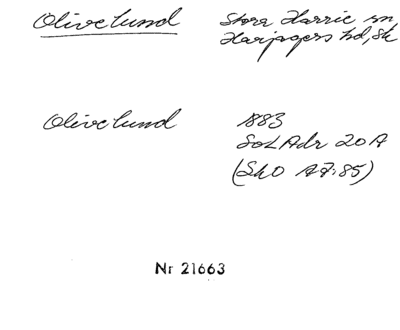 Olivelund Stora Harrie sn,
Harjagers hd, Sk
Olivelund 1883
SOLAdr 20 A
(SkO A7:85)
Nr 21663